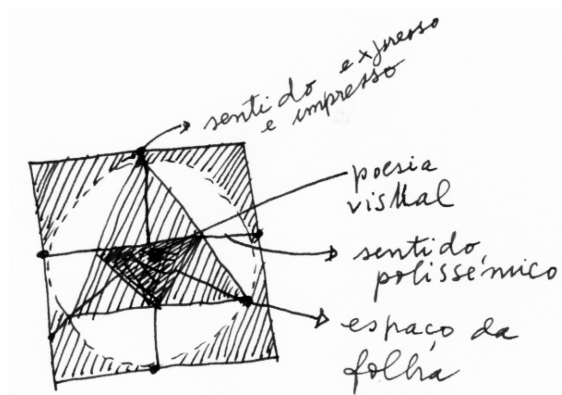 sentido expresso
e impresso
poesia
visual
sentido
polissémico
espaço da
folha